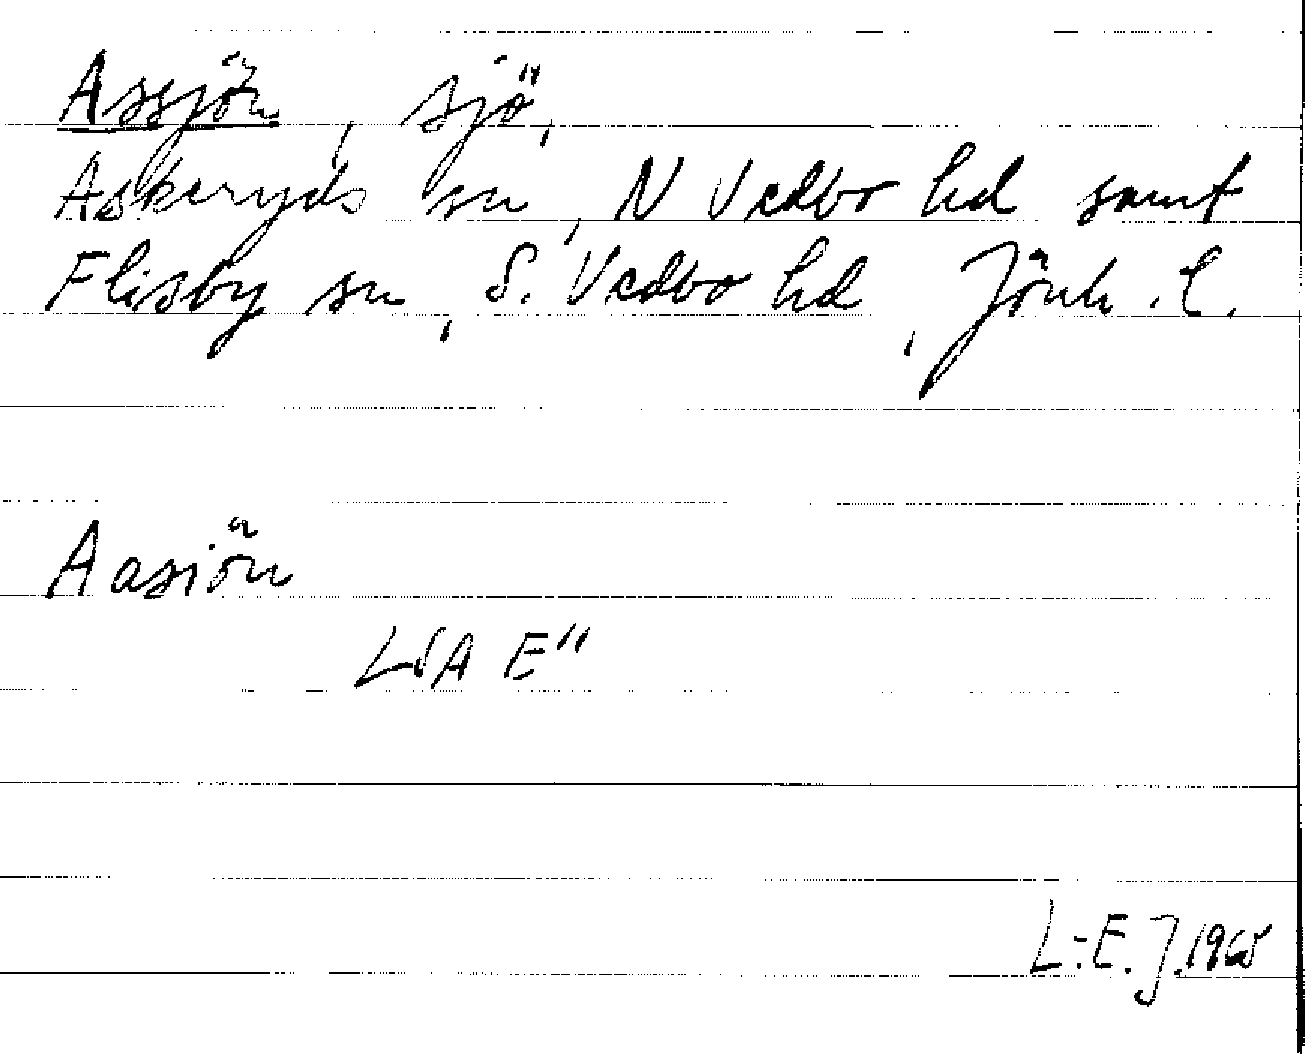 Assjön, sjö,
Askeryds sn, N Vedbo hd samt
Flisby sn, S. Vedbo hd, Jönk. l.
Aasiön
LSA E"
L-E. J.